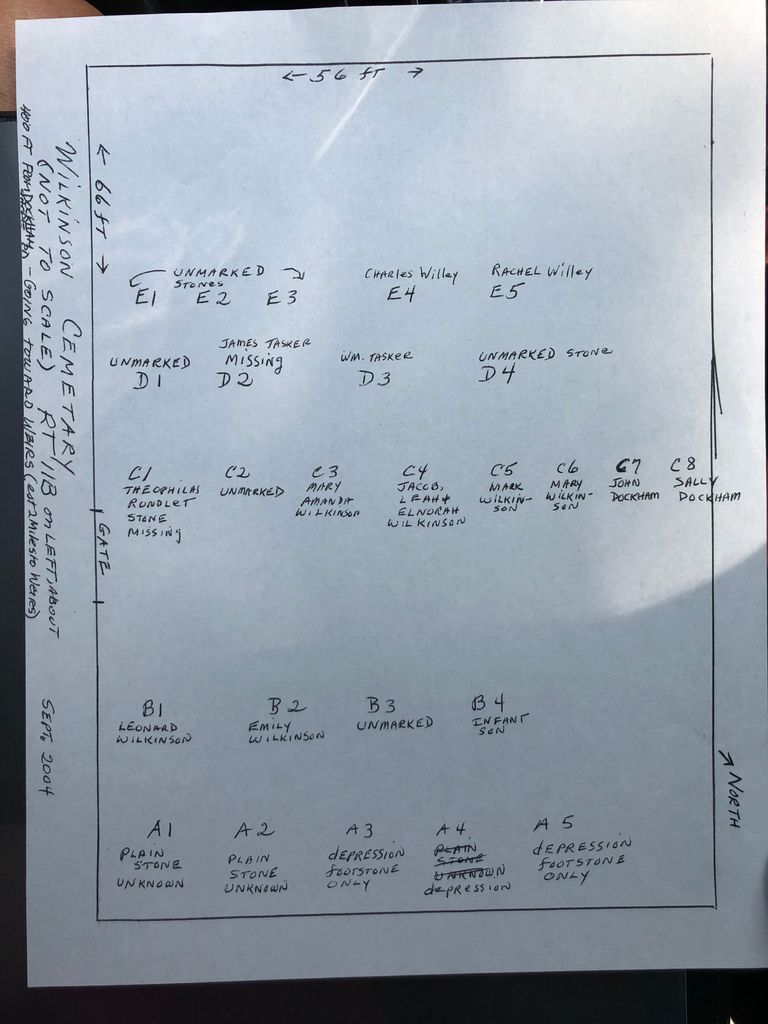 ← 56 ft →
← 66 ft →
UNMARKED
STONES
E1 E2 E3
CHARLES Willey
E4
RACHEL Willey
E5
UNMARKED
D1
JAMES TASKER
MISSING
D2
WM. TASKER
D3
UNMARKED STONE
D4
C1
THEOPHILAS
RUNDLET
STONE
MISSING
C2
UNMARKED
C3
MARY
AMANDA
WILKINSON
C4
JACOB,
LEAH &
ELNORAH
WILKINSON
C5
MARK
WILKIN-
SON
C6
MARY
WILKIN-
SON
C7
JOHN
DOCKHAM
C8
SALLY
DOCKHAM
GATE
B1
LEONARD
WILKINSON
B2
EMILY
WILKINSON
B3
UNMARKED
B4
INFANT
SON
A1
PLAIN
STONE
UNKNOWN
A2
PLAIN
STONE
UNKNOWN
A3
dEPRESSION
fOOTSTONE
ONLY
A4
PLAIN
STONE
UNKNOWN
depression
A5
dEPRESSION
fOOTSTONE
ONLY
NORTH
WILKINSON CEMETARY
(NOT TO SCALE) RT 11B on LEFT, ABOUT
- GOING TOWARD WEIRS
SEPT, 2004